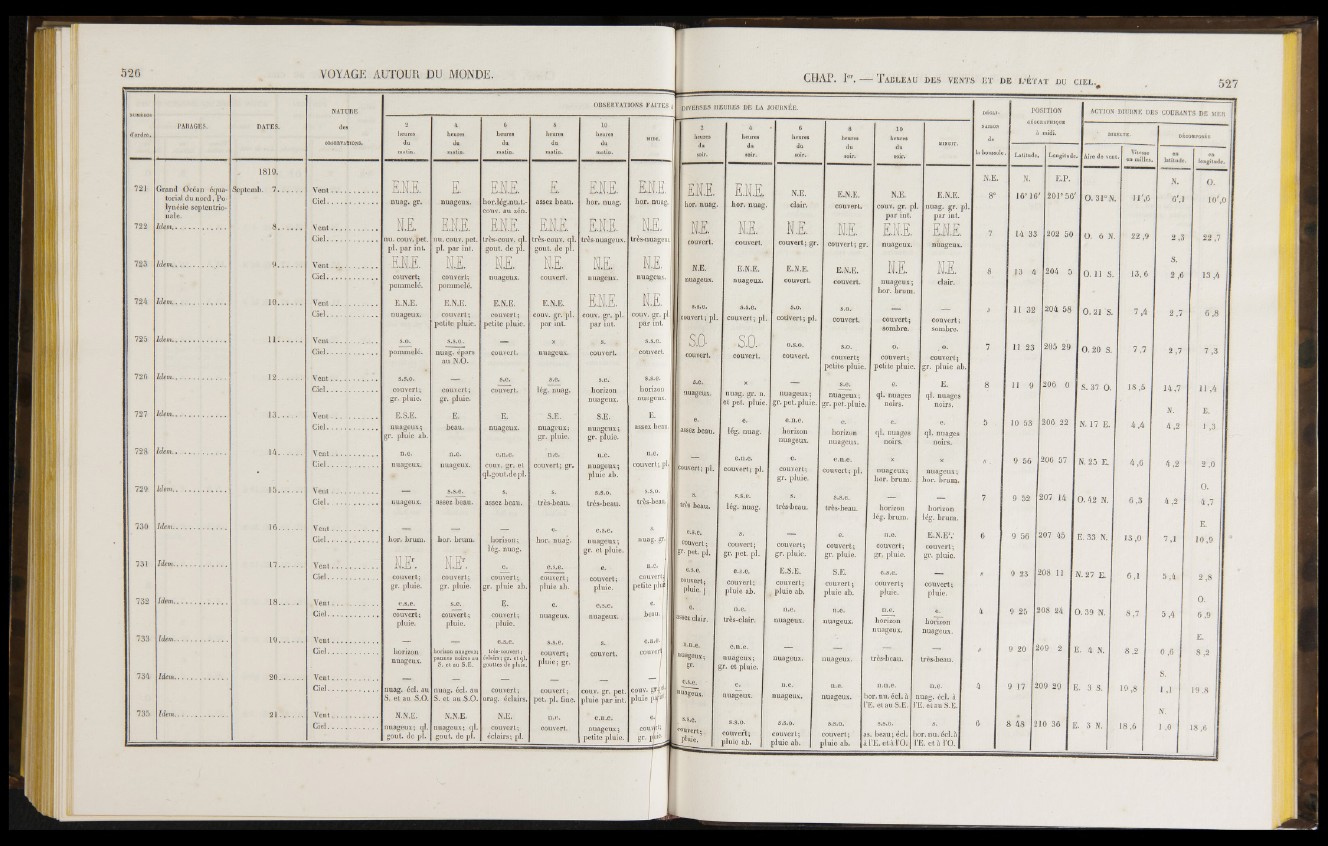 526 VOYAGE AUTOUR DU MONDE.
NUMÉROS d'ordre. PARAGES. DATES. NATURE des OBSERVATIONS. OBSERVATIONS FAITES
2 heures du matin. 4 heures du matin. 6 heures du matin. 8 heures du matin. 10 heures du matin. MIDI.
1819.
721 Grand Océan équatorial du nord, Polynésie septentrionale. Septemb. 7...... Vent........... E.N.E. E. E.N.E. E. E.N.E. E.N.E.
Ciel........... nuag. gr. nuageux. hor.lég.nu.t.-couv. au zén. assez beau. hor. nuag. hor. nuag.
722 Idem............ 8...... Vent........... N.E. E.N.E. E.N.E. E.N.E. E.N.E. N.E.
Ciel........... nu. couv. pet. pl. par int. nu. couv. pet. pl. par int. très-couv. ql. gout. de pl. très-couv. ql. gout. de pl. très-nuageux. très-nuageux
723 Idem............ 9...... Vent........... E.N.E. N.E. N.E. N.E. N.E. N.E.
Ciel........... couvert; pommelé. couvert; pommelé. nuageux. couvert. nuageux. nuageux.
724 Idem............ 10...... Vent........... E.N.E. E.N.E. E.N.E. E.N.E. E.N.E. N.E.
Ciel........... nuageux. couvert; petite pluie. couvert; petite pluie. couv. gr. pl. par int. couv. gr. pl. par int. couv. gr. pl par int.
725 Idem............ 11...... Vent........... s.o. s.s.o. — x s. s.s.o.
Ciel........... pommelé. nuag. épars au N.O. couvert. nuageux. couvert. couvert.
726 Idem............ 12...... Vent........... s.s.e. — s.e. s.e. s.e. s.s.o.
Ciel........... couvert; gr. pluie. couvert; gr. pluie. couvert. lég. nuag. horizon nuageux. horizon nuageux.
727 Idem............ 13...... Vent........... E.S.E. E. E. S.E. S.E. E.
Ciel........... nuageux; gr. pluie ab. beau. nuageux. nuageux; gr. pluie. nuageux; gr. pluie. assez beau.
728 Idem............ 14...... Vent........... n.e. n.e. e.n.e. n.e. n.e. n.e.
Ciel........... nuageux. nuageux. couv. gr. et ql.gout.de pl. couvert; gr. nuageux; pluie ab. couvert; pl.
729 Idem............ 15...... Vent........... — s.s.e. s. s. s.s.o. s.s.o.
Ciel........... nuageux. assez beau. assez beau. très-beau. très-beau. très-beau
730 Idem............ 16...... Vent........... — — — e. e.s.e. s.
Ciel........... hor. brum. hor. brum. horizon; lég. nuag. hor. nuag. nuageux; gr. et pluie. nuag. gr.
731 Idem............ 17...... Vent........... N.Er. N.Er. e. e.s.e. e. n.e.
Ciel........... couvert; gr. pluie. couvert; gr. pluie. couvert; gr. pluie ab. couvert; pluie ab. couvert; pluie. couvert petite pluie
732 Idem............ 18...... Vent........... e.s.e. s.e. E. e. e.s.e. e.
Ciel........... couvert; pluie. couvert; pluie. couvert; pluie. nuageux. nuageux. beau.
733 Idem............ 19...... Vent........... — — e.n.e. s.s.e. s. e.n.e.
Ciel........... horizon nuageux. horizon nuageux; pannes noires au S. et au S.E. très-couvert; éclairs; gr. et ql. gouttes de pluie. couvert; pluie; gr. couvert. couvert
734 Idem............ 20...... Vent........... — — — — — —
Ciel........... nuag. écl. au S. et au S.O. nuag. écl. au S. et au S.O. couvert; orag. éclairs. couvert; pet. pl. fine. couv. gr. pet. pluie par int. couv. gr.
735 Idem............ 21...... Vent........... N.N.E. N.N.E. N.E. n.e. e.n.e. e.
Ciel........... nuageux; ql. gout. de pl. nuageux; ql. gout. de pl. couvert; éclairs; pl. couvert. nuageux; petite pluie.
CHAP. Ier. — TABLEAU DES VENTS ET DE L'ÉTAT DU CIEL. 527
DIVERSES HEURES DE LA JOURNÉE. DÉCLINAISON de la boussole. POSITION GÉOGRAPHIQUE à midi. ACTION DIURNE DES COURANTS DE MER
2 heures du soir. 4 heures du soir. 6 heures du soir. 8 heures du soir. 10 heures du soir. MINUIT. Latitude. Longitude. DIRECTE. Aire de vent. Vitesse en milles. DÉCOMPOSÉE en latitude. en longitude.
N.E. N. E.P. N. O.
E.N.E. E.N.E. N.E. E.N.E. N.E. E.N.E. 8° 16°16' 201°56' O. 31° N. 11',6 6',1 10',0
hor. nuag. hor. nuag. clair. couvert. couv. gr. pl. par int. nuag. gr. pl. par int.
N.E. N.E. N.E. N.E. E.N.E. E.N.E. 7 14 33 202 50 O. 6 N. 22,9 2,3 22,7
couvert. couvert. couvert; gr. couvert; gr. nuageux. nuageux.
S.
N.E. E.N.E. E.N.E. E.N.E. N.E. N.E. 8 13 4 204 5 O. 11 S. 13,6 2,6 15,4
nuageux. nuageux. couvert. couvert. nuageux; hor. brum. clair.
s.s.o. s.s.o. s.o. s.o. — — 11 32 204 58 O. 21 S. 7,4 2,7 6,8
couvert; pl. couvert; pl. couvert; pl. couvert. couvert; sombre. couvert; sombre.
S.O. S.O. o.s.o. s.o. o. o. 7 11 23 205 29 O. 20 S. 7,7 2,7 7,3
couvert. couvert. couvert. couvert; petite pluie. couvert; petite pluie. couvert; gr. pluie ab.
s.o. x — s.e. e. E. 8 11 0 206 0 S. 37 O. 18,5 14,7 11,4
nuageux. nuag. gr. n. et pet. pluie. nuageux; gr. pet. pluie. nuageux; gr. pet. pluie. ql. nuages noirs. ql. nuages noirs.
N. E.
e. e. e.n.e. e. e. e. 5 10 53 206 22 N. 17 E. 4,4 4,2 1,3
assez beau. lég. nuag. horizon nuageux. horizon nuageux. ql. nuages noirs. ql. nuages noirs.
— e.n.e. e. e.n.e. x x 9 56 206 57 N. 25 E. 4,6 4,2 2,0
couvert; pl. couvert; pl. couvert; gr. pluie. couvert; pl. nuageux; hor. brum. nuageux; hor. brum.
O.
s. s.s.e. s. s.s.e. — — 7 9 52 207 14 O. 42 N. 6,3 4,2 4,7
très beau. lég. nuag. très-beau. très-beau. horizon lég. brum. horizon lég. brum.
E.
e.s.e. s. — e. n.e. E.N.E. 6 9 56 207 45 E. 33 N. 13,0 7,1 10,9
couvert; gr. pet. pl. couvert; gr. pet. pl. couvert; gr. pluie. couvert; gr. pluie. couvert; gr. pluie. couvert; gr. pluie.
e.s.e. e.s.e. E.S.E. S.E. e.s.e. — 9 23 208 11 N. 27 E. 6,1 5,4 2,8
couvert; pluie. couvert; pluie ab. couvert; pluie ab. couvert; pluie ab. couvert; pluie. couvert; pluie.
O.
e. n.e. n.e. n.e. n.e. e. 4 9 25 208 24 O. 39 N. 8,7 5,4 6,9
assez clair. très-clair. nuageux. nuageux. horizon nuageux. horizon nuageux.
E.
s.n.e. e.n.e. — — — — 9 20 209 2 E. 4 N. 8,2 0,6 8,2
nuageux; gr. nuageux; gr. et pluie. nuageux. nuageux. très-beau. très-beau.
S.
e.s.e. e. n.e. n.e. n.n.e. n.e. 4 9 17 209 29 E. 3 S. 19,8 1,1 19,8
nuageux. nuageux. nuageux. nuageux. hor. nu. écl. à l'E. et au S.E. nuag. écl. à l'E. et au S.E.
N.
s.s.e. s.s.o. s.s.o. s.s.o. s.s.o. s. 6 8 48 210 36 E. 3 N. 18,6 1,0 18,6
couvert; pluie. couvert; pluie ab. couvert; pluie ab. couvert; pluie ab. as. beau; écl. à l'E. et à l'O. hor. nu. écl. à l'E. et à l'O.